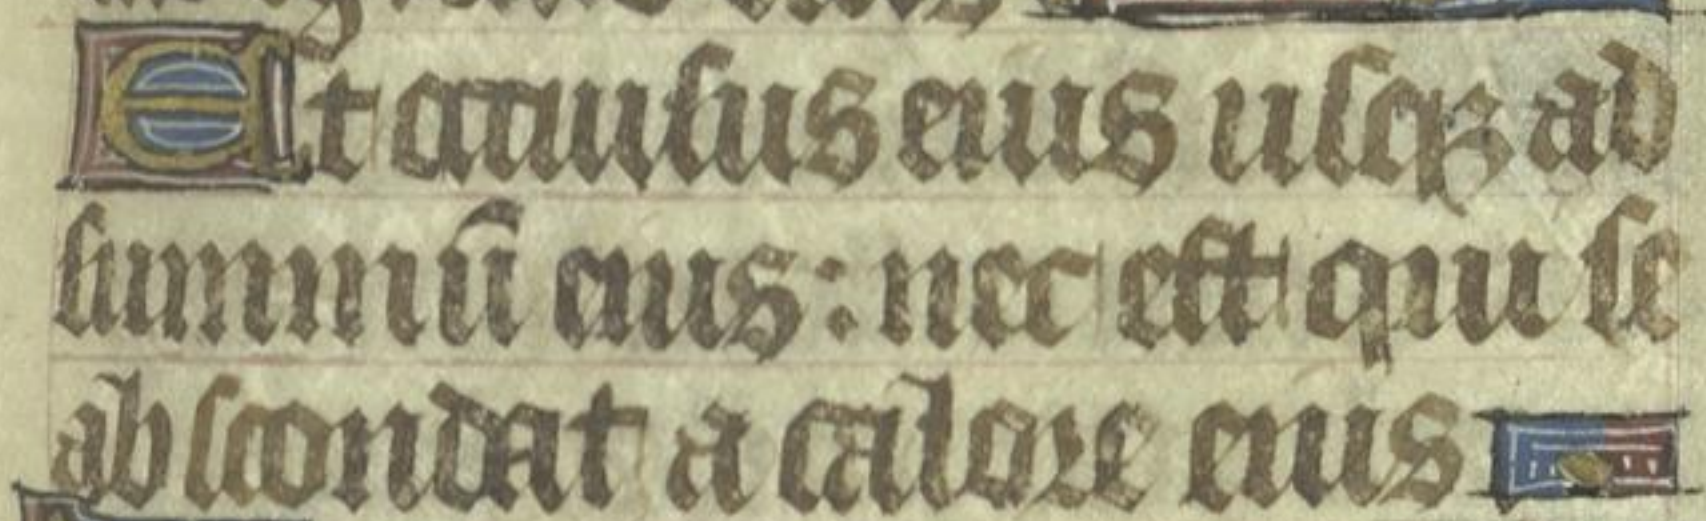 Et occursus eius usqꝫ ad
summū eius : nec est qui se
abscondat a calore eius